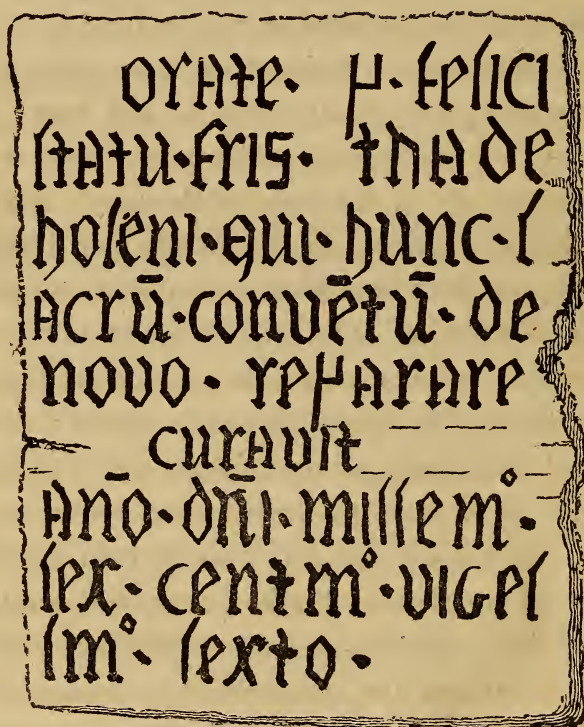 orate· p· felici
ſtatu·fris· thade
holeni·qui·hunc·ſ
acrū·convētū·de
novo· reparare
curavit
an̄o·dn̄i·millem°·
ſex·centm°·vigeſ
ſm°· ſexto·